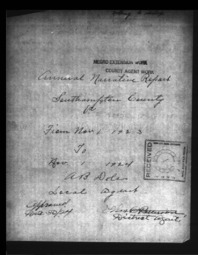 NEGRO EXTENSION WORK
COUNTY AGENT WORK
Annual Narrative Report
Southampton County
Va
From Nov 1 1923
To
Nov 1 1924
Local Agent
RECEIVED
Approved
District Agent